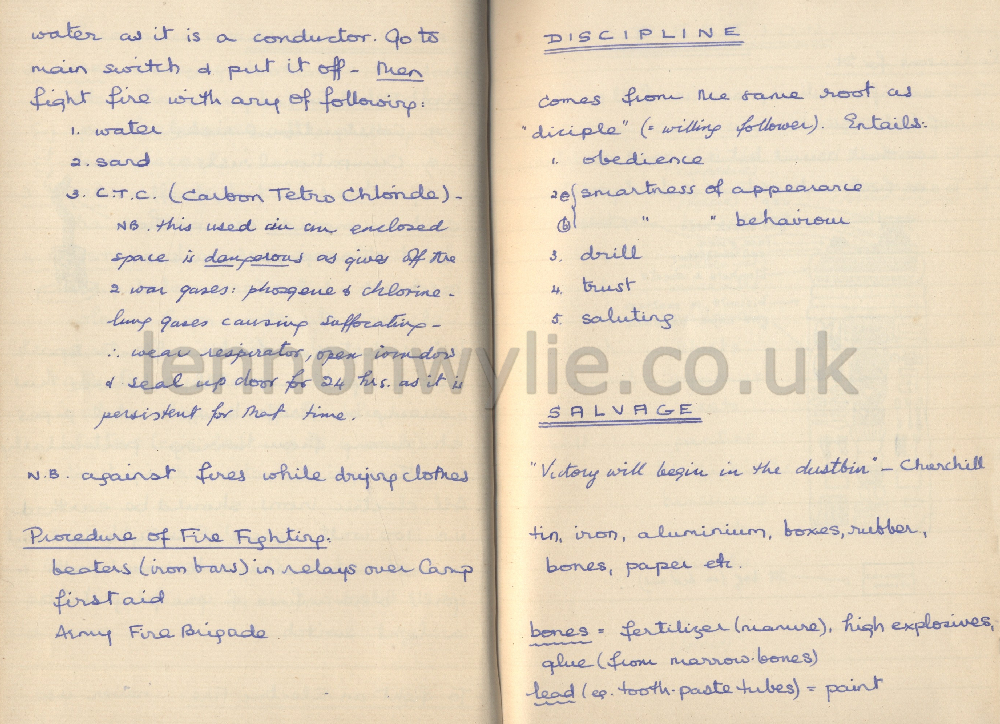 water as it is a conductor. Go to
main switch & put it off - then
fight fire with any of following:
1. water
2. sand
3. C.T.C. (Carbon Tetro Chloride) -
NB. this used in an enclosed
space is dangerous as gives off the
2 war gases: phosgene & chlorine -
lung gases causing suffocating -
∴ wear respirator, open windows
& seal up door for 24 hrs. as it is
persistent for that time.
N.B. against fires while drying clothes
Procedure of Fire Fighting:
beaters (iron bars) in relays over Camp
first aid
Army Fire Brigade
DISCIPLINE
comes from the same root as
"diciple" (= willing follower). Entails:
1. obedience
2 a { smartness of appearance
b { " " behaviour
3. drill
4. trust
5. saluting
SALVAGE
"Victory will begin in the dustbin" - Churchill
tin, iron, aluminium, boxes, rubber,
bones, paper etc.
bones = fertilizer (manure), high explosives,
glue (from marrow-bones)
lead (eg. tooth-paste tubes) = paint
lennonwylie.co.uk